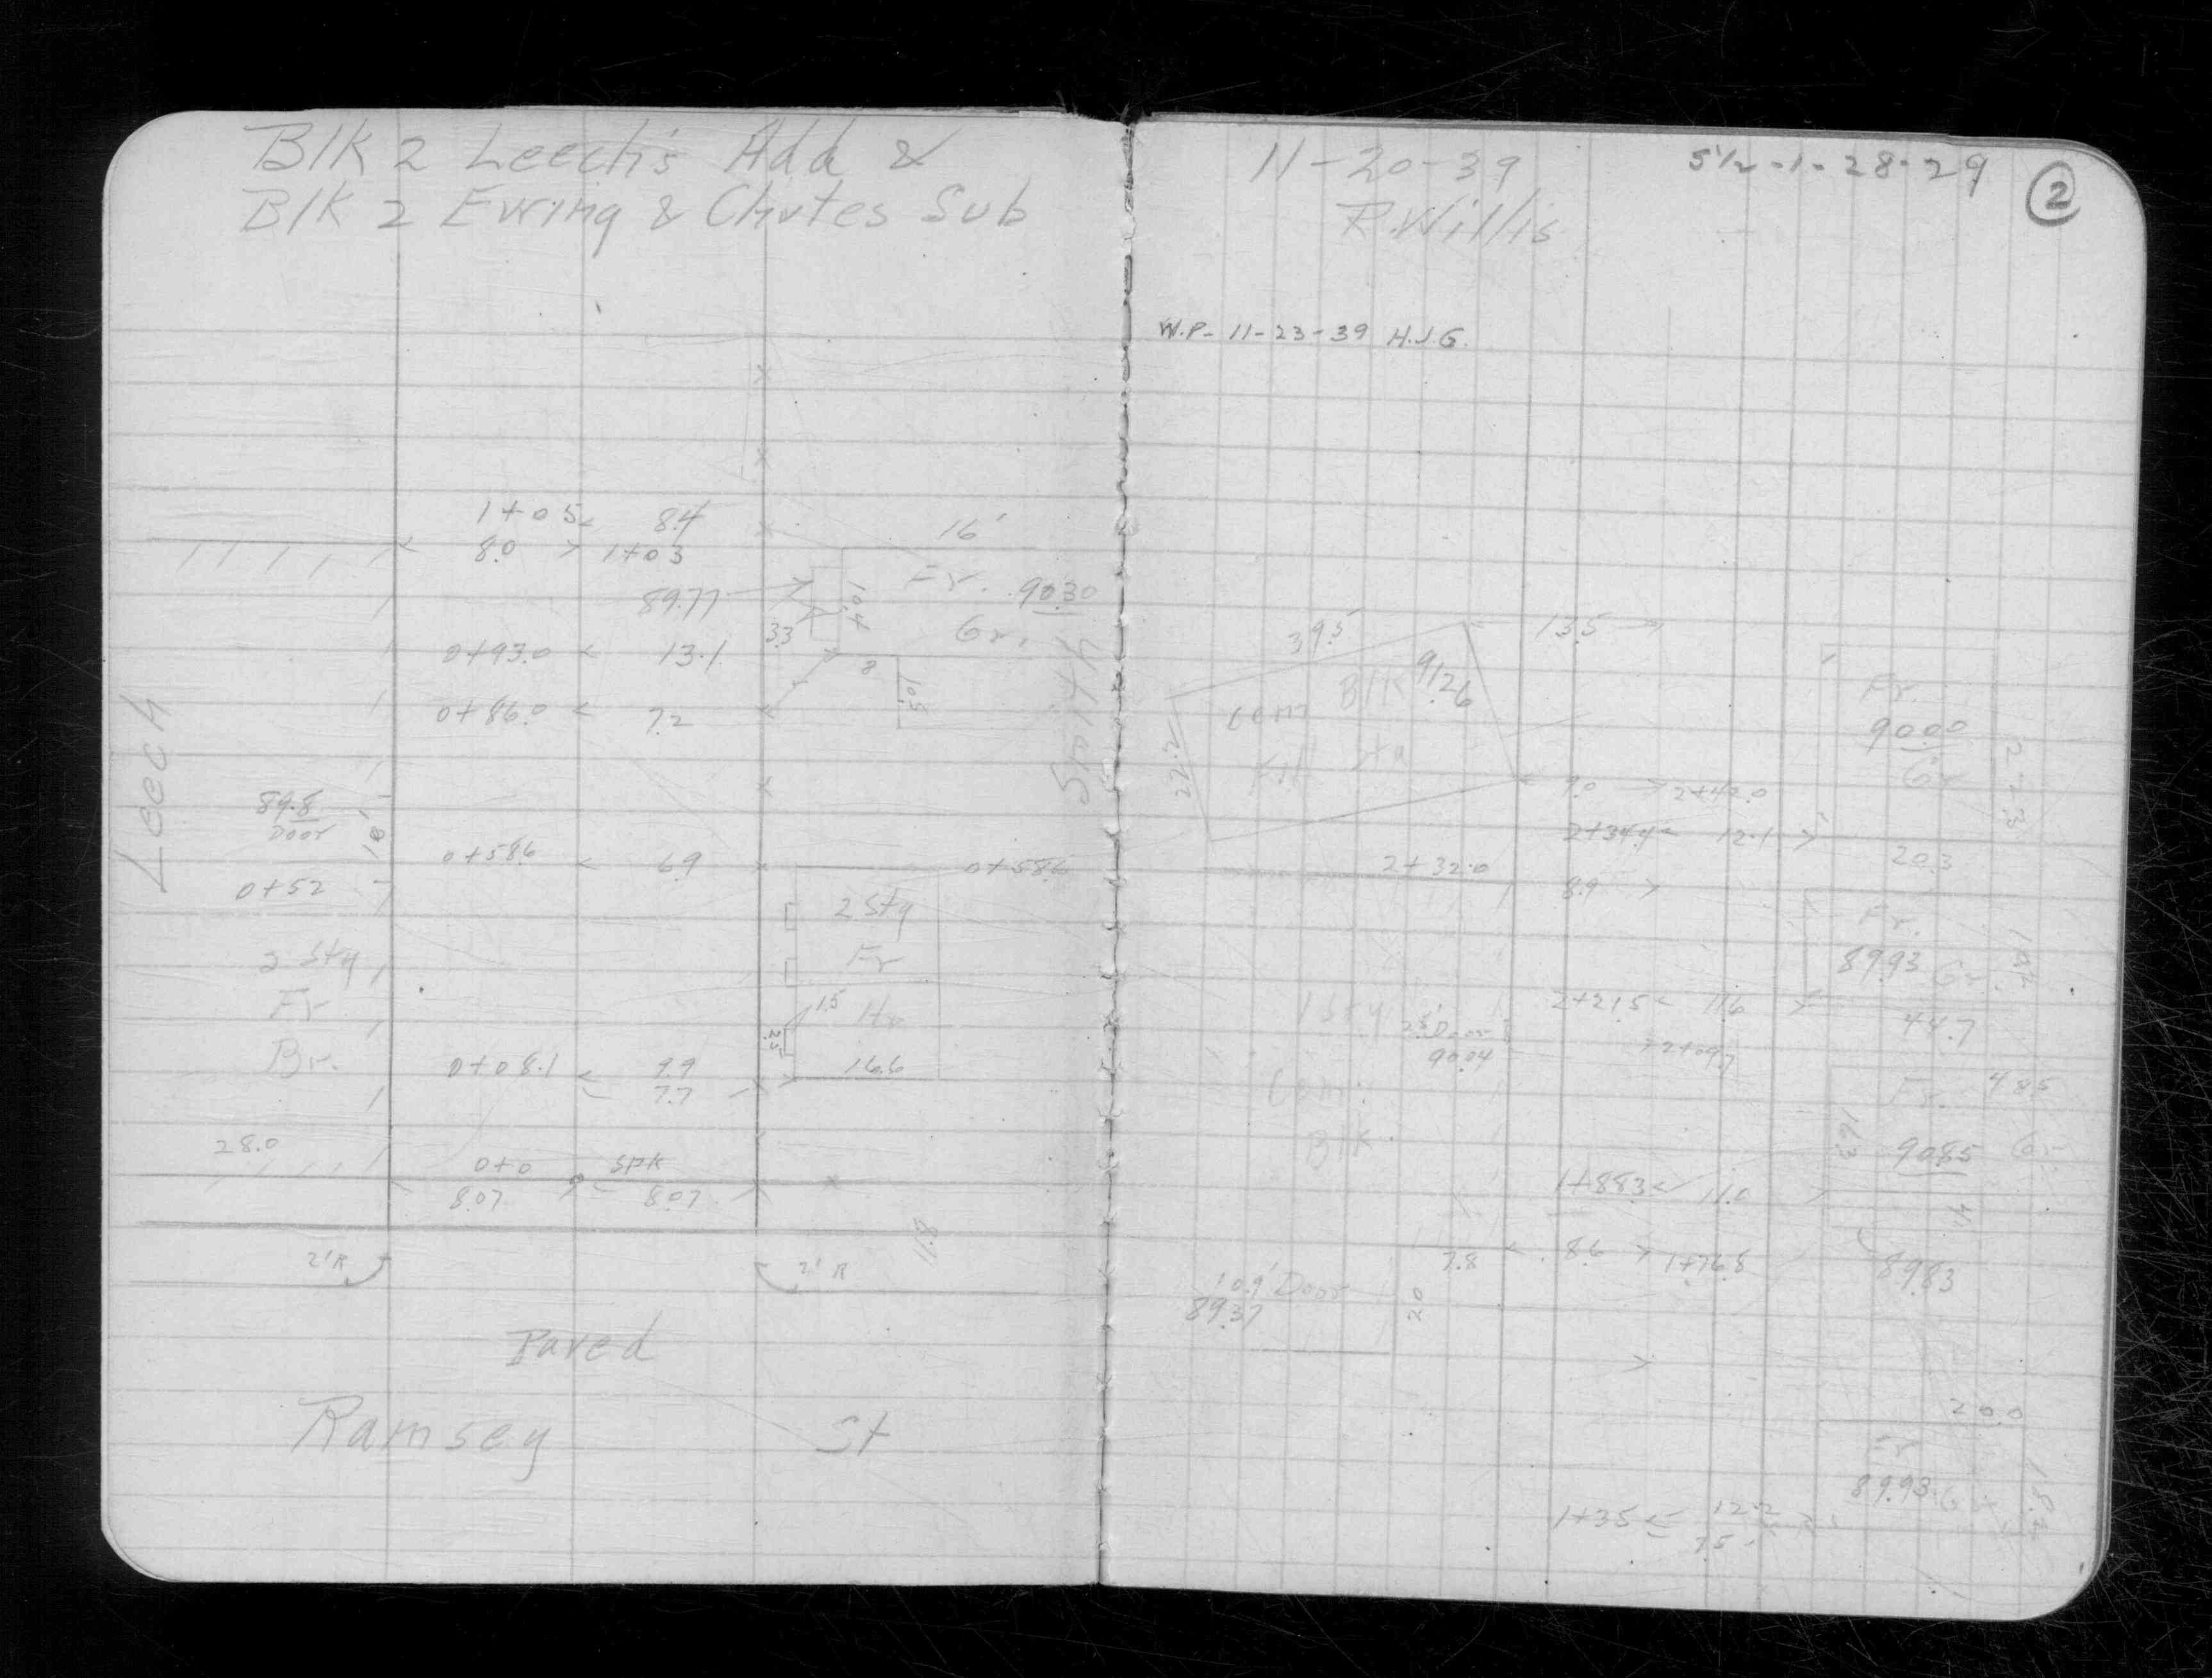 Blk 2 Leech's Add &
Blk 2 Ewing & Chutes Sub
1+05 8.4
8.0 1+03
16'
89.77
Fr. 90.30
10.4
Gr.
3.3
0+93.0 13.1
8
10.5
0+86.0 7.2
Leech
Smith
89.8
Door
18'
0+58.6 6.9 0+58.6
0+52
2 Sty
Fr
Ho
2 Sty
Fr
Br.
1.5
2.5
0+08.1 9.9 16.6
7.7
28.0
0+0 SPK
8.07 8.07
11.8
2'R 2'R
Paved
Ramsey St
11-20-39 5½-1-28-29 2
R. Willis
W.P- 11-23-39 H.J.G.
39.5' 13.5
Blk 91.26
Cem
22.2
Fr.
90.00
Gr
22.3
9.0 2+42.0
2+34.4 12.1
20.3
2+32.0
8.9
Fr.
89.93 Gr.
19.2
2+21.5 11.6
44.7
1 Sty
Door
90.04
2+09.7
Cem.
Blk
Fr. 48.5
16.3
90.85 Gr.
1+88.3 11.0
7.8 8.6 1+76.8
89.83
10.9' Door
89.37
20
20.0
Fr
89.93 Gr
18.2
1+35 12.2
7.5